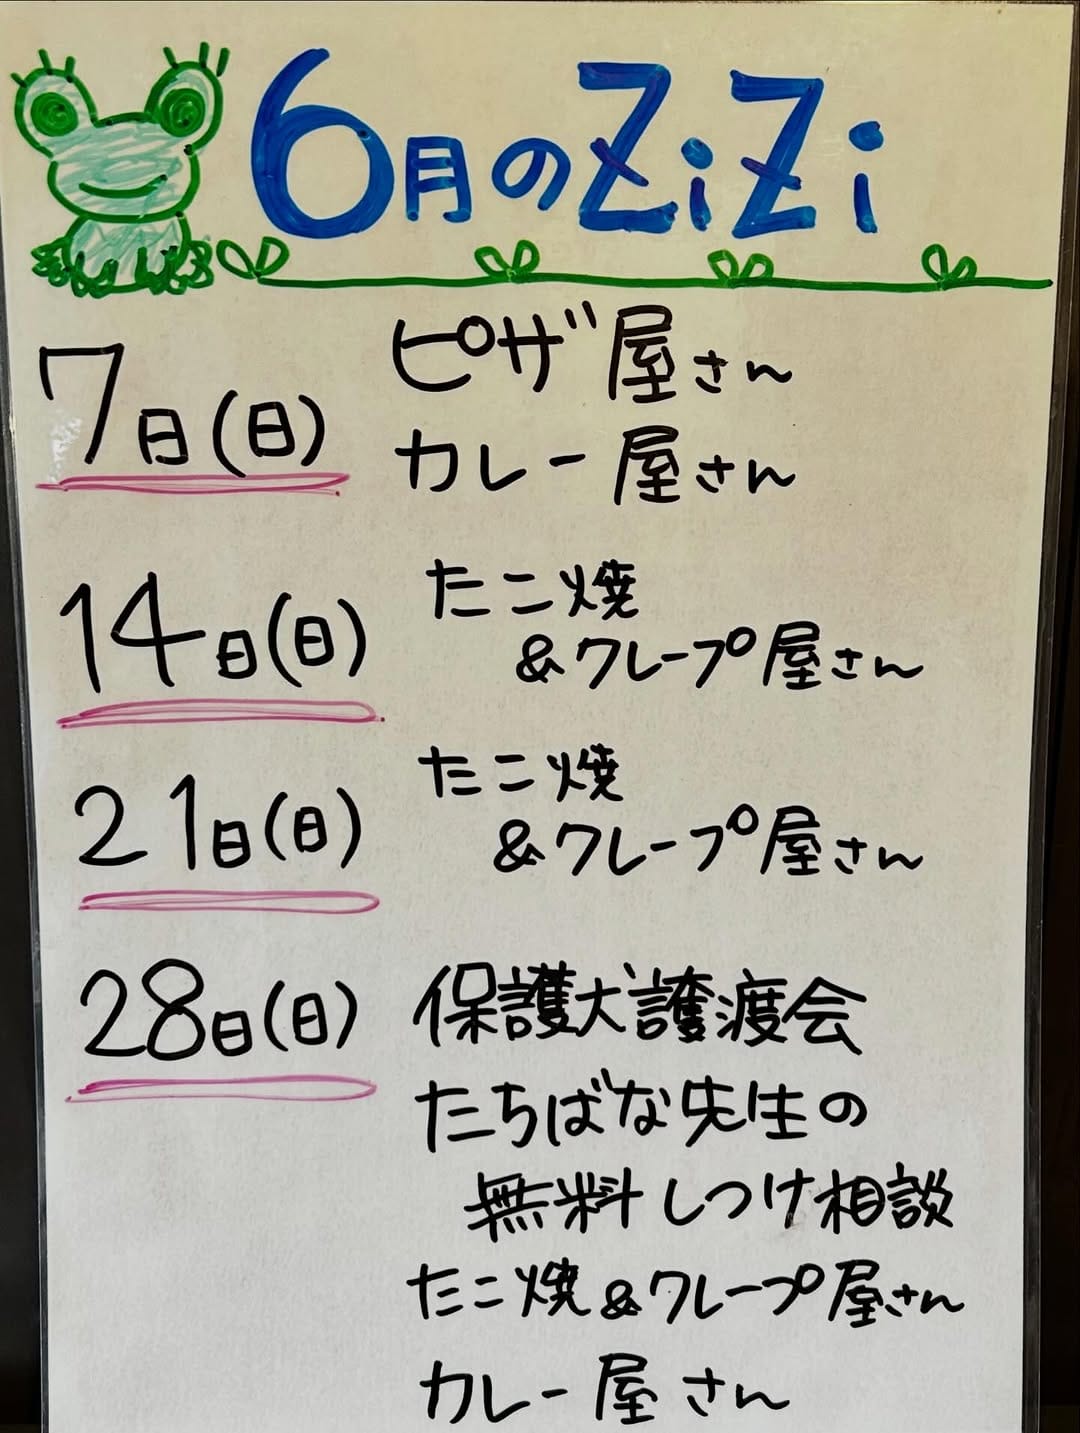 6月のZiZi
7日(日)
ピザ屋さん
カレー屋さん
14日(日)
たこ焼
&クレープ屋さん
21日(日)
たこ焼
&クレープ屋さん
28日(日)
保護犬譲渡会
たちばな先生の
無料しつけ相談
たこ焼&クレープ屋さん
カレー屋さん